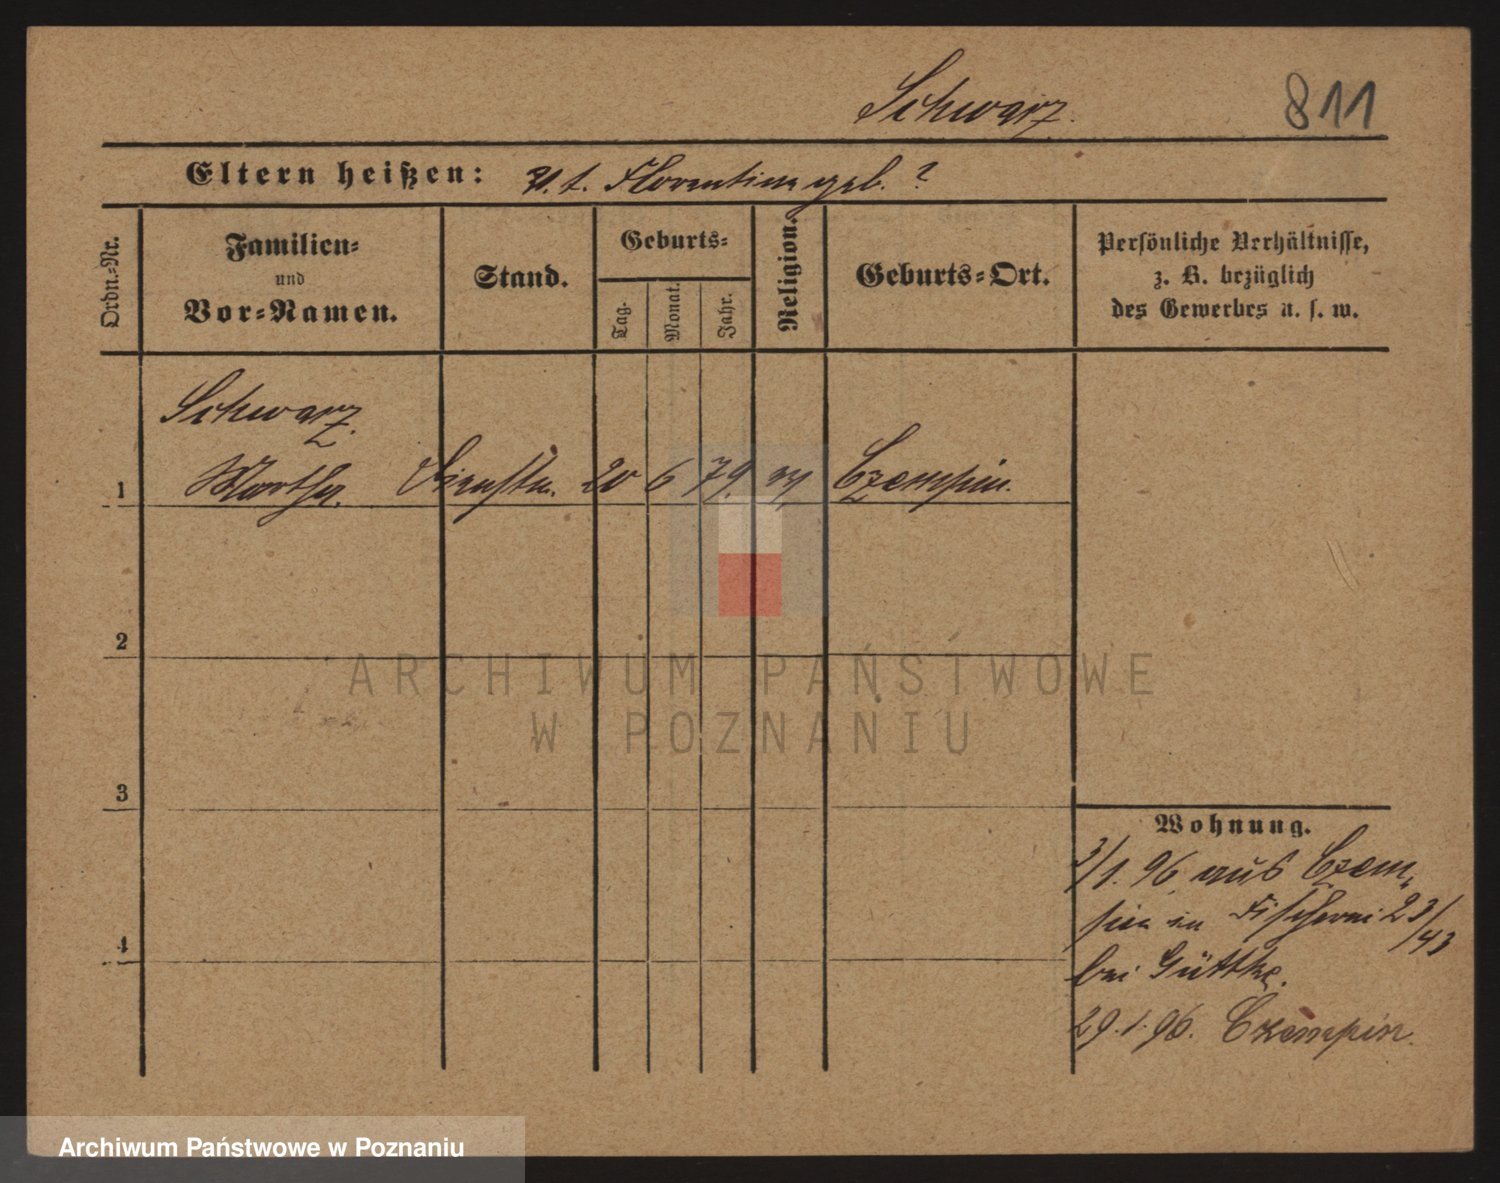 Schwarz.
811
Eltern heißen: u. t. Florentine geb. ?
Ordn.=Nr.
Familien=
und
Vor=Namen.
Stand.
Geburts=
Tag.
Monat.
Jahr.
Religion.
Geburts=Ort.
Persönliche Verhältnisse,
z. B. bezüglich
des Gewerbes u. s. w.
Schwarz.
1 Martha. Dienstm. 20 6 79 Czempin.
2
3
4
ARCHIWUM PAŃSTWOWE
W POZNANIU
Wohnung.
3/1. 96 aus Czem-
pin in Fischerei 23/43
bei Güttke.
29.1.96. Czempin.
Archiwum Państwowe w Poznaniu